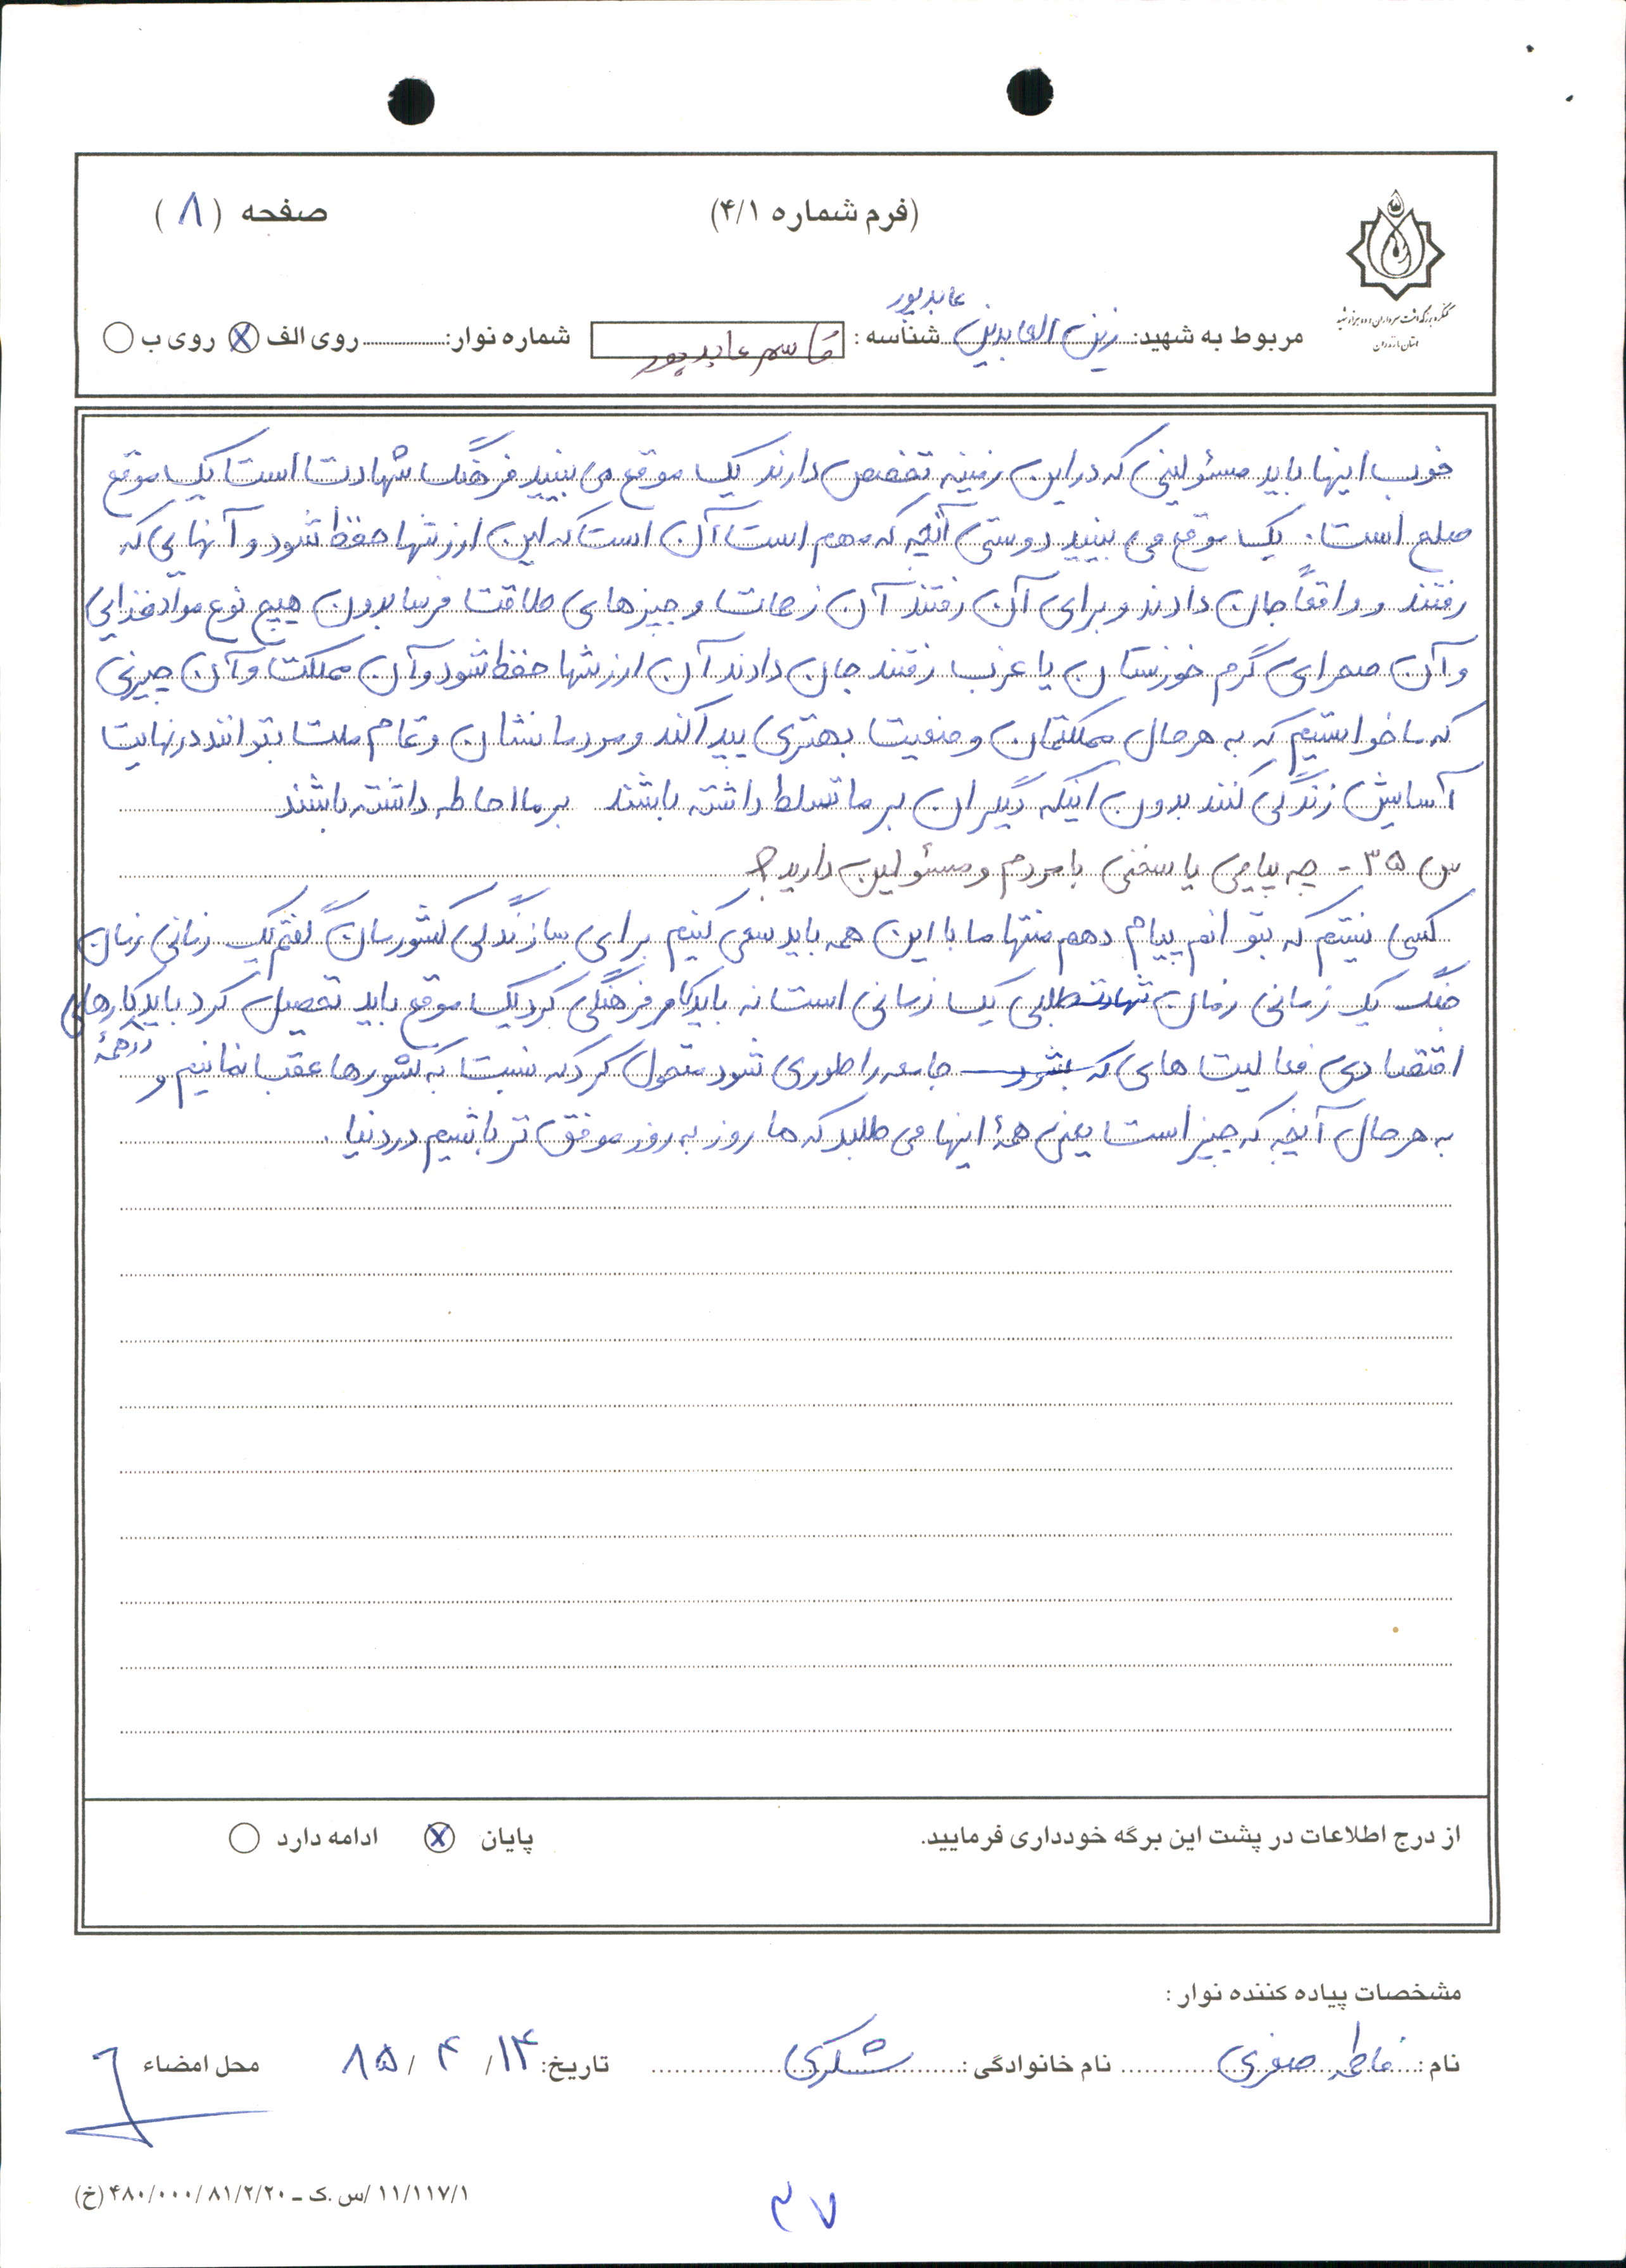 (فرم شماره ۴/۱)
صفحه (۸)
کنگره بزرگداشت سرداران و ده هزار شهید
استان مازندران
عابدپور
مربوط به شهید: زین العابدین شناسه: قاسم عابدپور شماره نوار: روی الف روی ب
خوب اینها باید مسئولینی که در این زمینه تخصص دارند یک موقع می بینید فرهنگ شهادت است یک موقع
صلح است. یک موقع می بینید دوستی آنچه که مهم است آن است که این ارزشها حفظ شود و آنهایی که
رفتند و واقعاً جان دادند و برای آن رفتند آن زحمات و چیزهای طاقت فرسا بدون هیچ نوع مواد غذایی
و آن صحرای گرم خوزستان یا غرب رفتند جان دادند آن ارزشها حفظ شود و آن مملکت و آن چیزی
که ما خواستیم که به هر حال مملکتمان وضعیت بهتری پیدا کند و مردمانشان و تمام ملت بتوانند در نهایت
آسایش زندگی کنند بدون اینکه دیگران بر ما تسلط داشته باشند بر ما احاطه داشته باشند
س ۳۵- چه پیامی یا سخنی با مردم و مسئولین دارید؟
کسی نیستم که بتوانم پیام دهم منتها ما با این همه باید سعی کنیم برای سازندگی کشورمان گفتم یک زمانی زمان
جنگ یک زمانی زمان شهادت طلبی یک زمانی است نه باید کار فرهنگی کرد یک موقع باید تحصیل کرد باید کارهای
اقتصادی فعالیت های که بشود جامعه را طوری شود متحول کرد که نسبت به کشورها عقب نمانیم و در همۀ
به هر حال آنچه که چیز است یعنی همۀ اینها می طلبد که ما روز به روز موفق تر باشیم در دنیا.
از درج اطلاعات در پشت این برگه خودداری فرمایید.
پایان ادامه دارد
مشخصات پیاده کننده نوار:
نام: فاطمه صغری نام خانوادگی: شکری تاریخ: ۱۴/۴/۸۵ محل امضاء
۱۱/۱۱۷/۱/س.ک ـ ۴۸۰/۰۰۰/۸۱/۲/۲۰ (خ)
۳۷